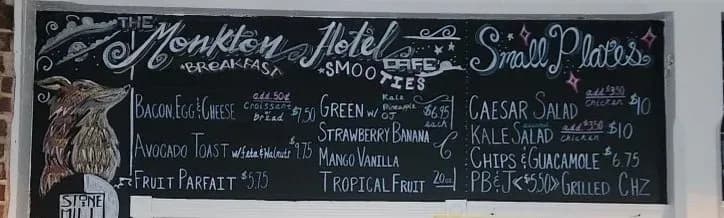 THE
Monkton Hotel
CAFE
*BREAKFAST*
*SMOOTIES
Small Plates
BACON, EGG & CHEESE add .50¢ Croissant Bread $7.50
AVOCADO TOAST w/ feta & Walnuts $9.75
FRUIT PARFAIT $5.75
GREEN w/ Kale Pineapple OJ $6.95 each
STRAWBERRY BANANA
MANGO VANILLA
TROPICAL FRUIT 20oz
CAESAR SALAD add $3.50 chicken $10
KALE SALAD add $3.50 chicken $10
CHIPS & GUACAMOLE $6.75
PB & J <$5.50> GRILLED CHZ
STONE
MILL